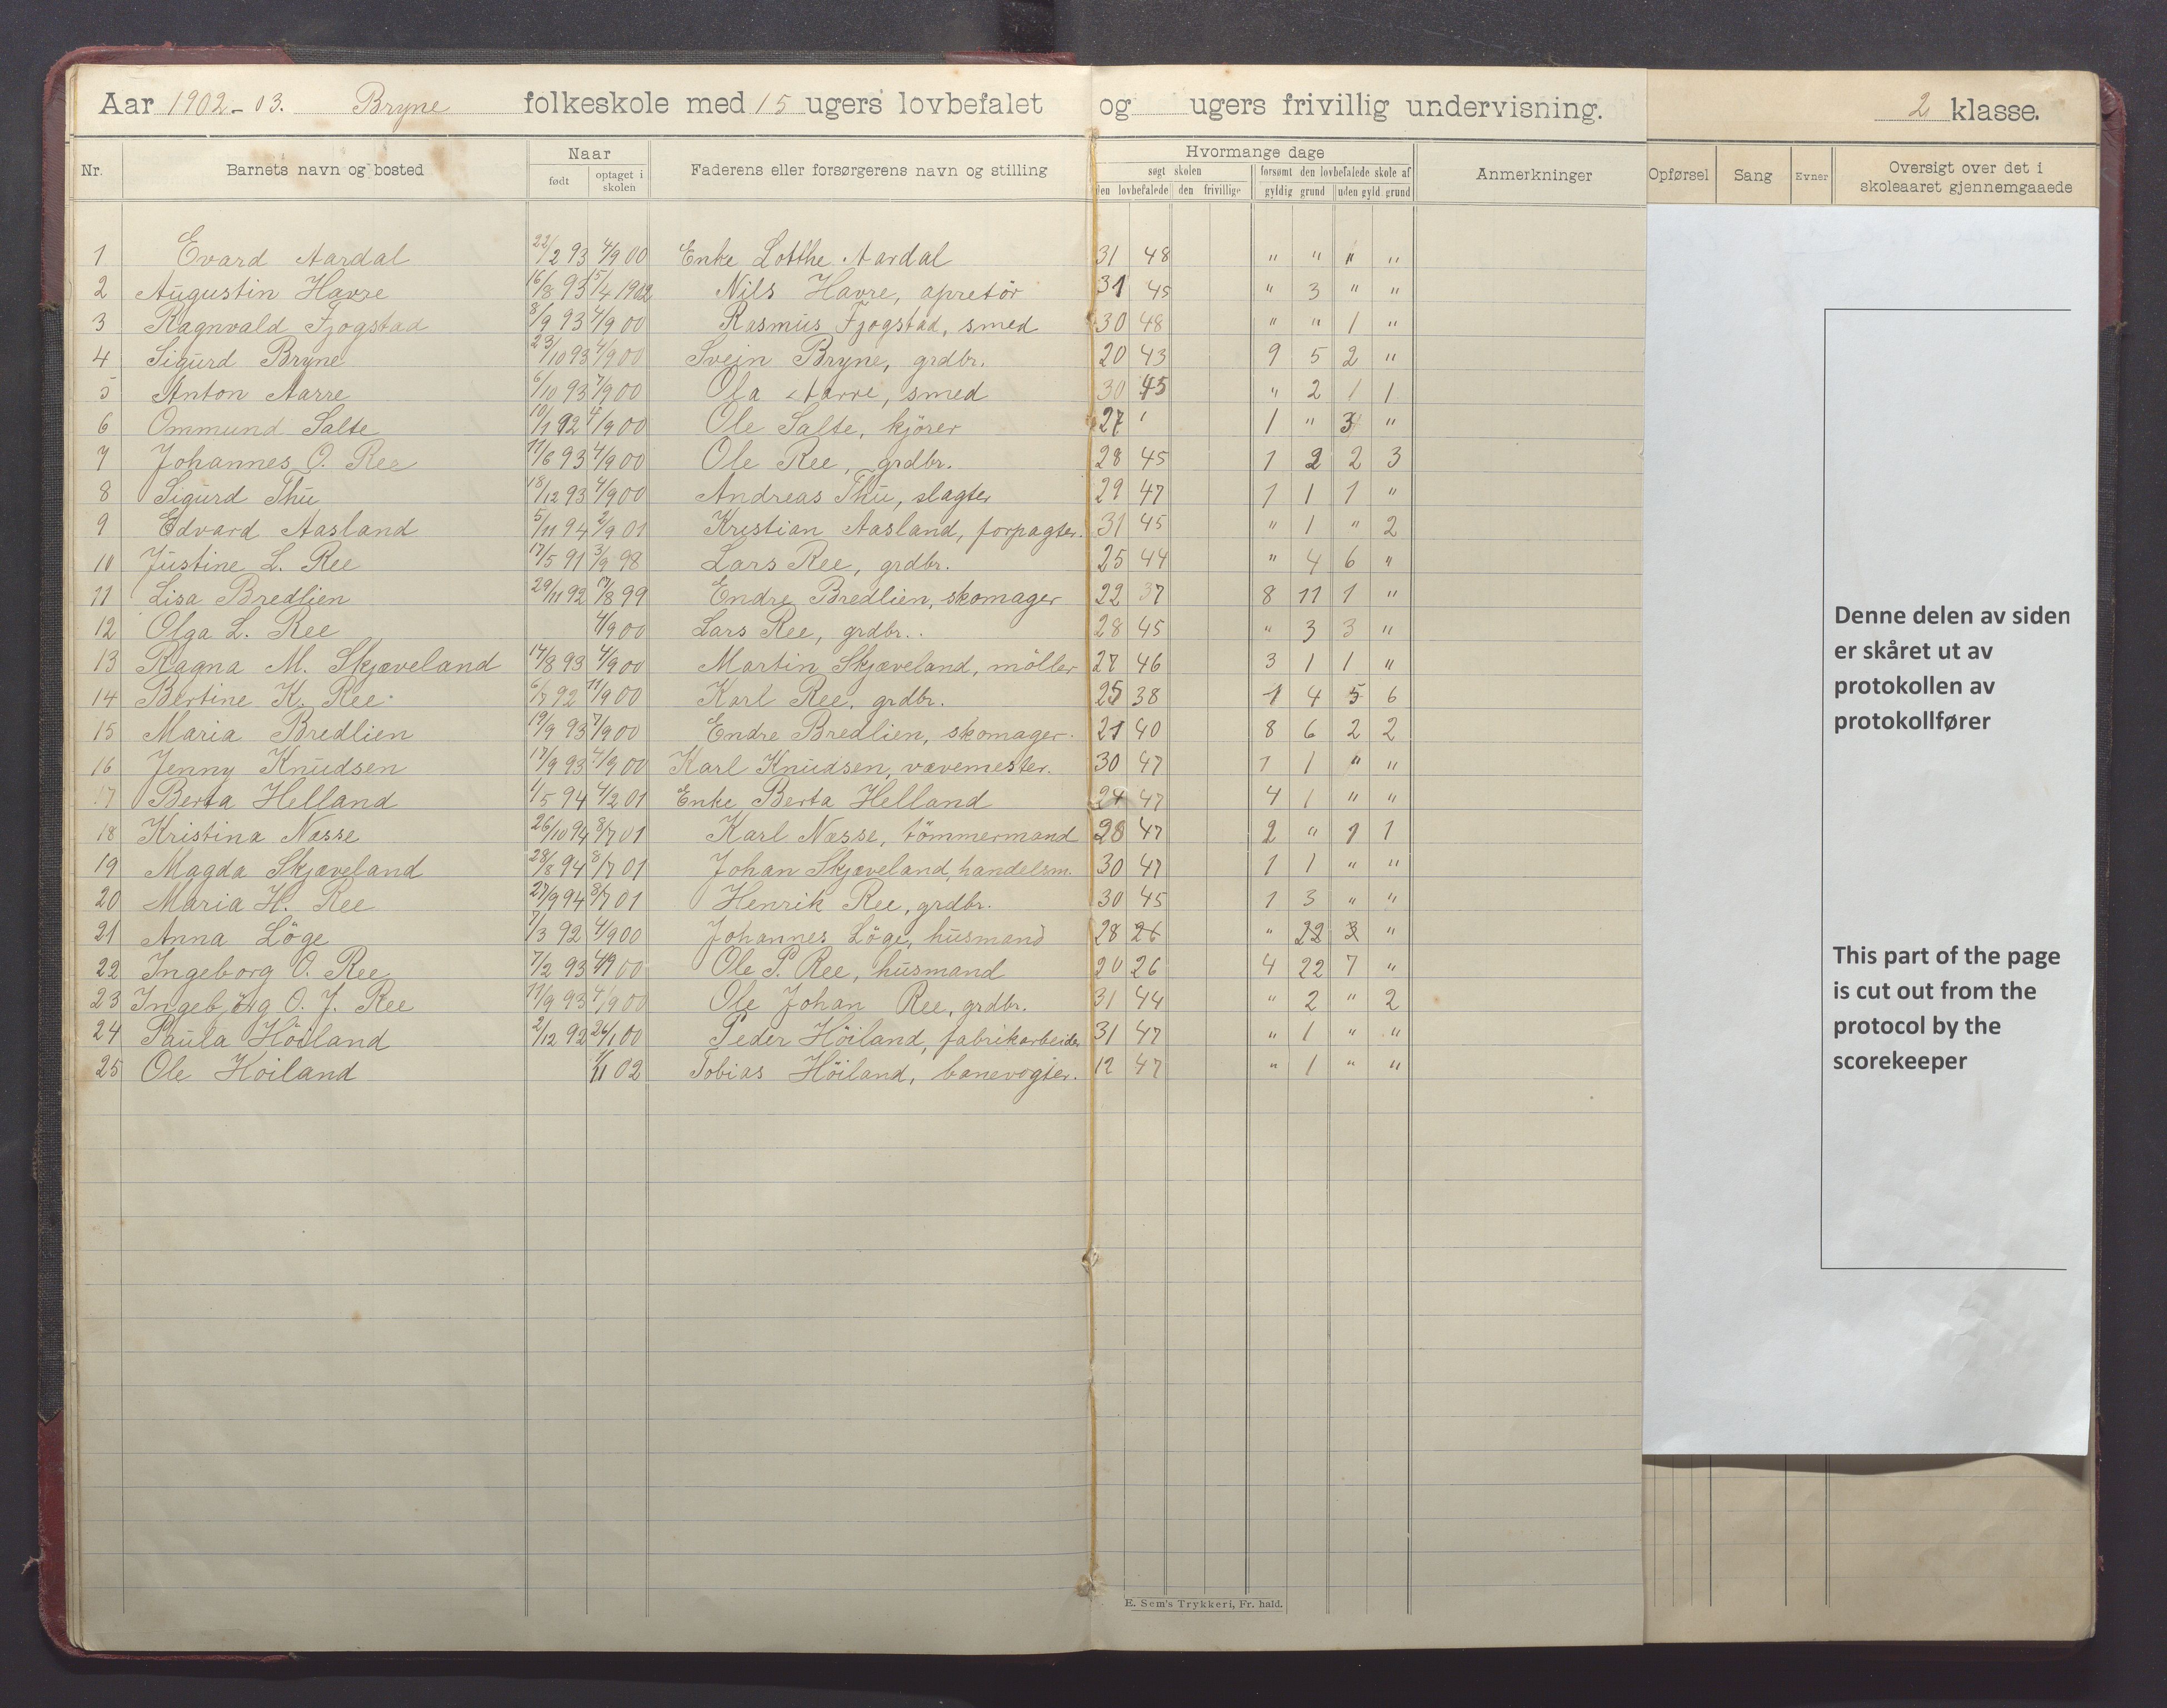 Aar 1902-03. Bryne folkeskole med 15 ugers lovbefalet og ugers frivillig undervisning. 2 klasse.
Nr. Barnets navn og bosted Naar født optaget i skolen Faderens eller forsørgerens navn og stilling Hvormange dage søgt skolen den lovbefalede den frivillige forsømt den lovbefalede skole af gyldig grund uden gyld. grund Anmerkninger Opførsel Sang Evner Oversigt over det i skoleaaret gjennemgaaede
1 Evard Aardal 22/2 93 4/9 00 Enke Lotthe Aardal 31 48 " " " "
2 Augustin Havre 16/8 93 15/4 1902 Nils Havre, apretör 31 45 " 3 " "
3 Ragnvald Fjogstad 8/9 93 4/9 00 Rasmus Fjogstad, smed 30 48 " " 1 "
4 Sigurd Bryne 23/10 93 4/9 00 Svein Bryne, grdbr. 20 43 9 5 2 "
5 Anton Aarre 6/10 93 7/9 00 Ola Aarre, smed 30 45 " 2 1 1
6 Ommund Salte 10/1 92 4/9 00 Ole Salte, kjörer 27 ' 1 " 3 "
7 Johannes O. Ree 11/6 93 4/9 00 Ole Ree, grdbr. 28 45 1 2 2 3
8 Sigurd Thu 18/12 93 4/9 00 Andreas Thu, slagter 29 47 1 1 1 "
9 Edvard Aasland 5/11 94 2/9 01 Kristian Aasland, forpagter. 31 45 " 1 " 2
10 Justine L. Ree 17/5 91 3/9 98 Lars Ree, grdbr. 25 44 " 4 6 "
11 Lisa Bredlien 29/11 92 17/8 99 Endre Bredlien, skomager 22 37 8 11 1 "
12 Olga L. Ree 4/9 00 Lars Ree, grdbr. 28 45 " 3 3 "
13 Ragna M. Skjæveland 14/8 93 4/9 00 Martin Skjæveland, möller 27 46 3 1 1 "
14 Bertine K. Ree 6/7 92 11/9 00 Karl Ree, grdbr. 25 38 1 4 5 6
15 Maria Bredlien 19/9 93 7/9 00 Endre Bredlien, skomager. 21 40 8 6 2 2
16 Jenny Knudsen 17/9 93 4/9 00 Karl Knudsen, vævemester. 30 47 1 1 " "
17 Berta Helland 1/5 94 4/2 01 Enke Berta Helland 24 47 4 1 " "
18 Kristina Næsse 26/10 94 8/7 01 Karl Næsse, tömmermand 28 47 2 " 1 1
19 Magda Skjæveland 28/8 94 8/7 01 Johan Skjæveland, handelsm. 30 47 1 1 " "
20 Maria H. Ree 27/9 94 8/7 01 Henrik Ree, grdbr. 30 45 1 3 " "
21 Anna Löge 7/3 92 4/9 00 Johannes Löge, husmand 28 26 " 22 3 "
22 Ingeborg O. Ree 7/2 93 4/9 00 Ole P. Ree, husmand 20 26 4 22 7 "
23 Ingebjörg O. J. Ree 11/9 93 4/9 00 Ole Johan Ree, grdbr. 31 44 " 2 " 2
24 Paula Höiland 2/12 92 26/1 00 Peder Höiland, fabrikarbeider 31 47 " 1 " "
25 Ole Höiland 1/11 02 Tobias Höiland, banevogter. 12 47 " 1 " "
E. Sem's Trykkeri, Fr. hald.
Denne delen av siden
er skåret ut av
protokollen av
protokollfører
This part of the page
is cut out from the
protocol by the
scorekeeper